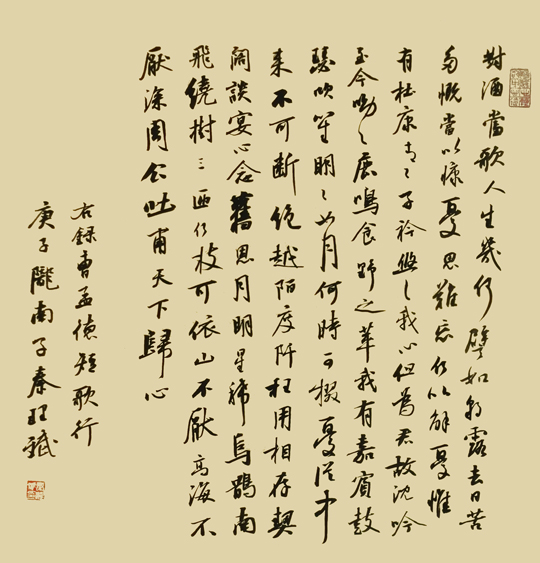 對酒當歌人生幾何譬如朝露去日苦
多慨當以慷憂思難忘何以解憂惟
有杜康青〻子衿悠〻我心但為君故沈吟
至今呦〻鹿鳴食野之苹我有嘉賓鼓
瑟吹笙明〻如月何時可掇憂從中
來不可斷絕越陌度阡枉用相存契
闊談宴心念舊恩月明星稀烏鵲南
飛繞樹三匝何枝可依山不厭高海不
厭深周公吐甫天下歸心
右錄曹孟德短歌行
庚子隴南子秦理斌